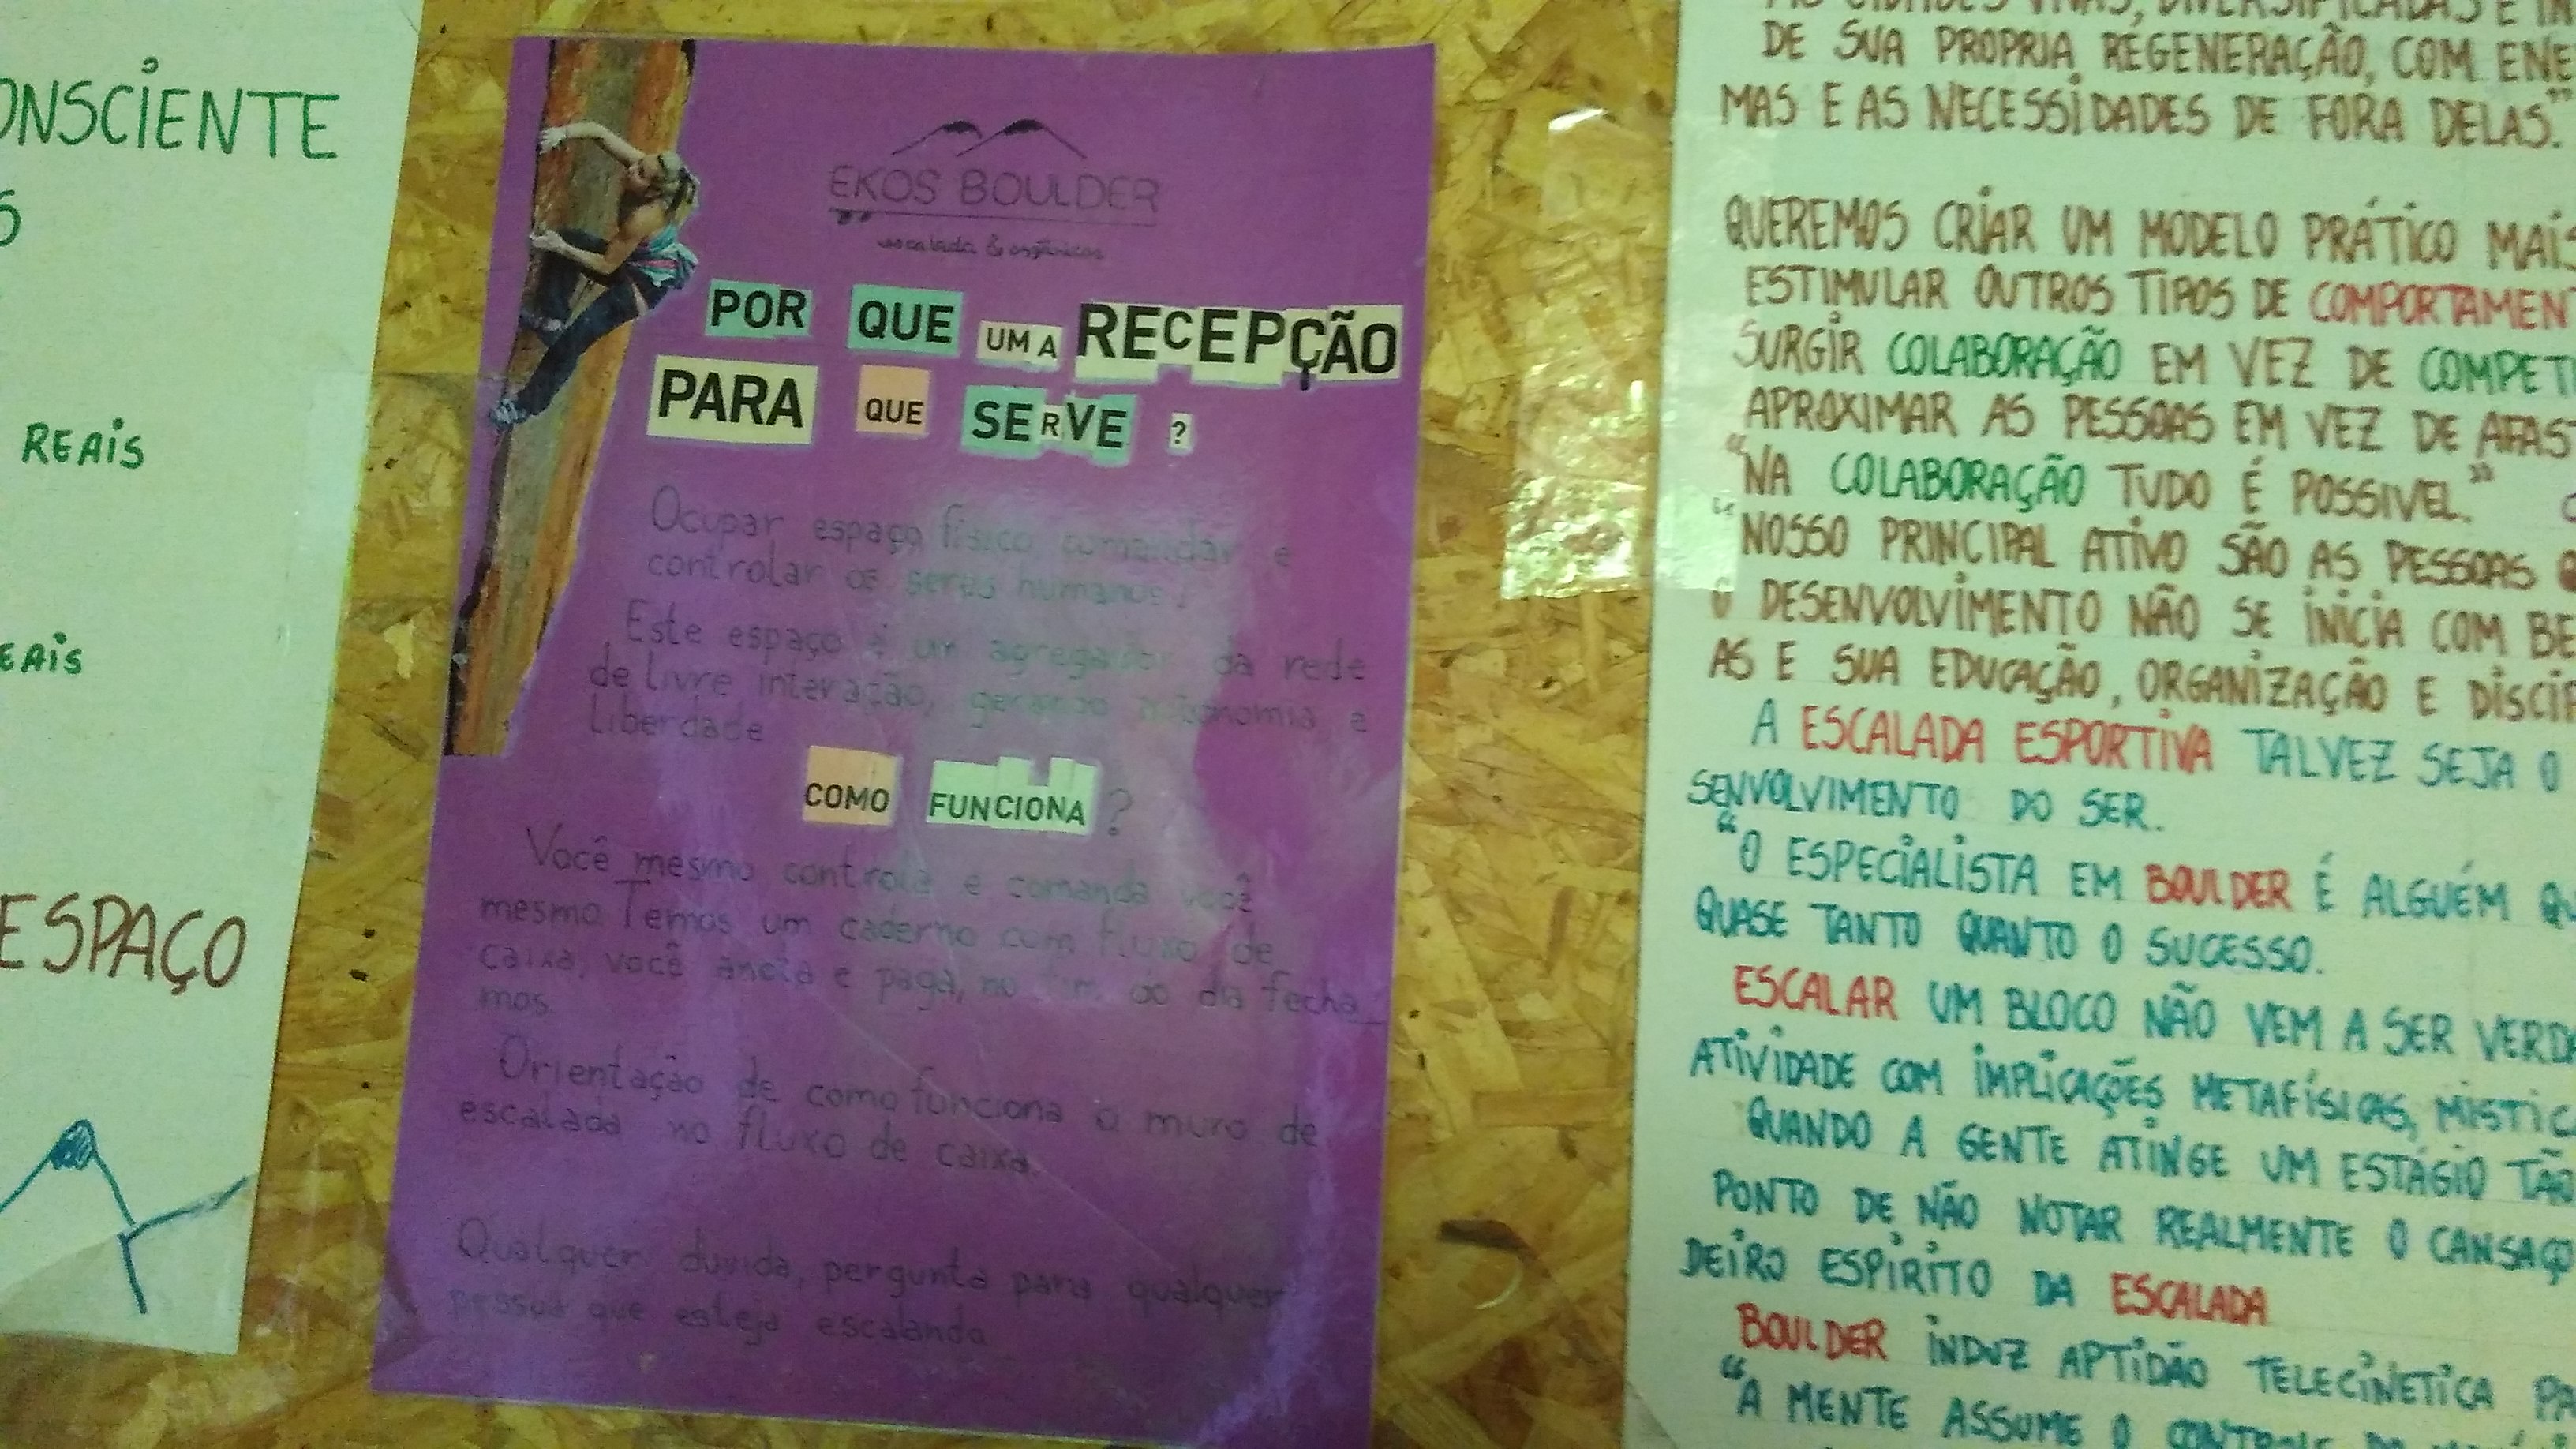 ONSCIENTE
S
REAIS
EAIS
ESPAÇO
EKOS BOULDER
escalada & orgânicos
POR QUE UMA RECEPÇÃO
PARA QUE SERVE ?
Ocupar espaço físico, comandar e
controlar os seres humanos.
Este espaço é um agregador da rede
de livre interação, gerando autonomia e
liberdade
COMO FUNCIONA ?
Você mesmo controla e comanda você
mesmo Temos um caderno com fluxo de
caixa, você anota e paga, no fim do dia fecha_
mos.
Orientação de como funciona o muro de
escalada no fluxo de caixa.
Qualquer dúvida, pergunta para qualquer
pessoa que esteja escalando
AS CIDADES VIVAS, DIVERSIFICADAS E IN
DE SUA PROPRIA REGENERAÇÃO, COM ENE
MAS E AS NECESSIDADES DE FORA DELAS."
QUEREMOS CRIAR UM MODELO PRÁTICO MAIS
ESTIMULAR OUTROS TIPOS DE COMPORTAMEN
SURGIR COLABORAÇÃO EM VEZ DE COMPETI
APROXIMAR AS PESSOAS EM VEZ DE AFAS
"NA COLABORAÇÃO TUDO É POSSIVEL."
"NOSSO PRINCIPAL ATIVO SÃO AS PESSOAS Q
O DESENVOLVIMENTO NÃO SE INICIA COM BE
AS E SUA EDUCAÇÃO, ORGANIZAÇÃO E DISCIP
A ESCALADA ESPORTIVA TALVEZ SEJA O
SENVOLVIMENTO DO SER.
"O ESPECIALISTA EM BOULDER É ALGUÉM QU
QUASE TANTO QUANTO O SUCESSO.
ESCALAR UM BLOCO NÃO VEM A SER VERDA
ATIVIDADE COM IMPLICAÇÕES METAFÍSICAS, MISTIC
QUANDO A GENTE ATINGE UM ESTÁGIO TÃO
PONTO DE NÃO NOTAR REALMENTE O CANSAÇO
DEIRO ESPIRITO DA ESCALADA
BOULDER INDUZ APTIDÃO TELECINETICA PA
"A MENTE ASSUME O CONTROLE DO